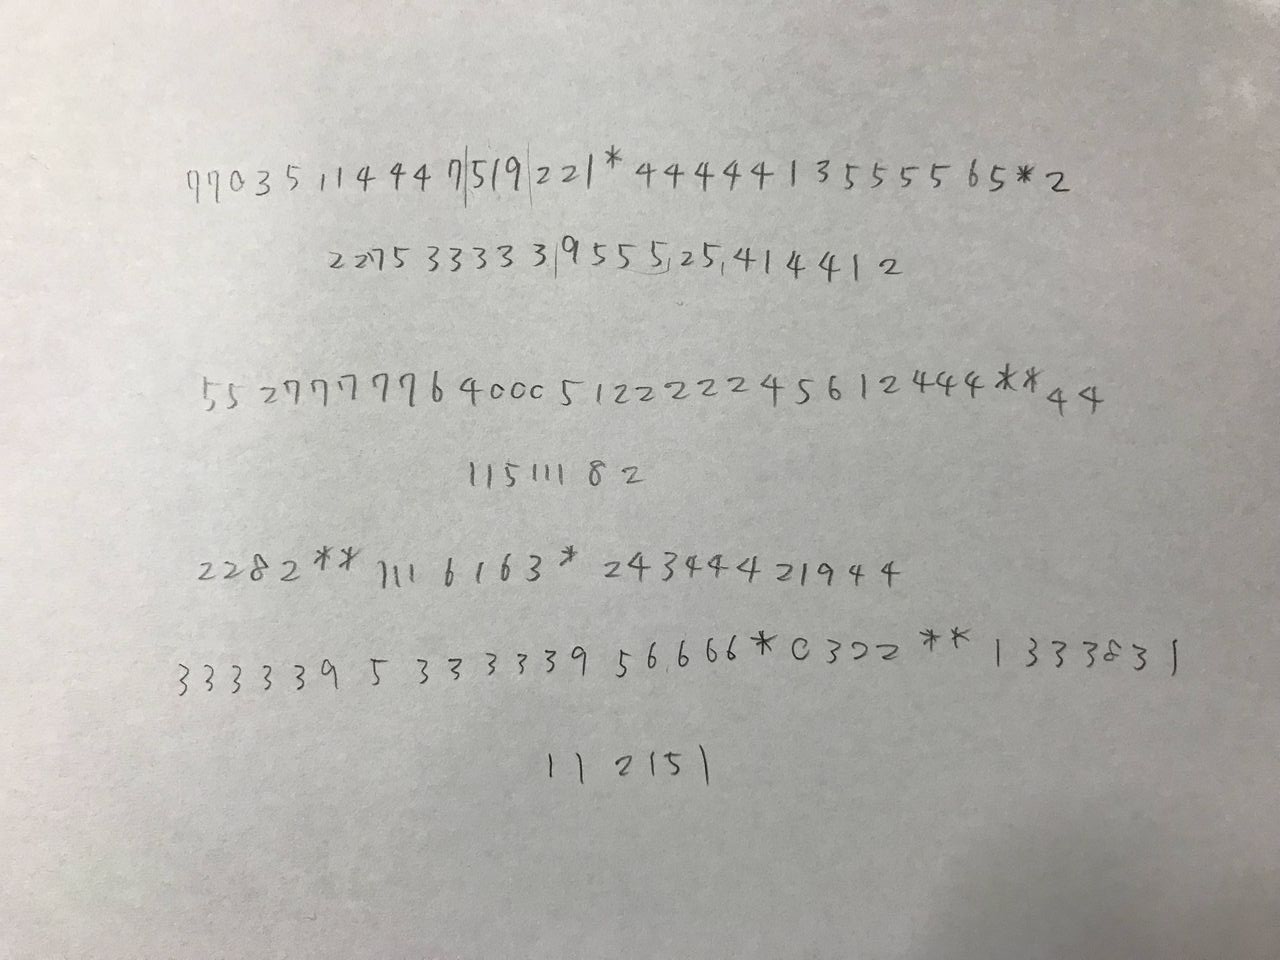 77035114447|519|221*44444135555565*2
2275333333|9555,25,414412
552777777640005122222456124 44**44
11511182
2282**1116163*243444421944
3333395333339566666*0322**1333831
112151